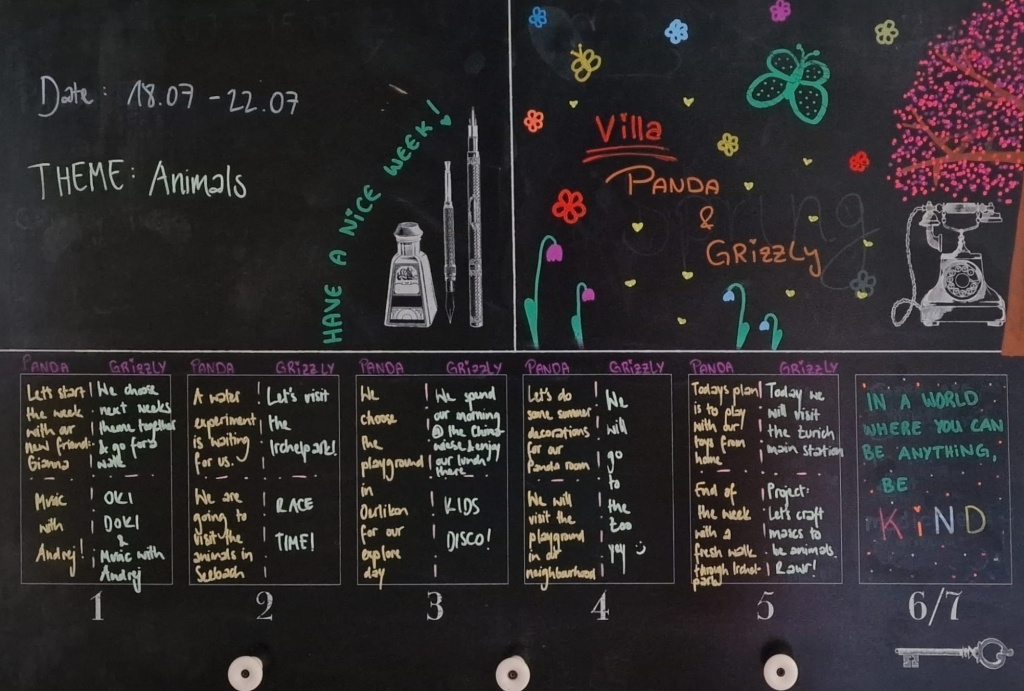 Date: 18.07 - 22.07
THEME: Animals
HAVE A NICE WEEK!
Villa
PANDA
&
GRIZZLY
Spring
PANDA
Let's start
the week
with our
new friend:
Gianna
Music
with
Andrej!
GRIZZLY
We choose
next weeks
theme together
& go for a
walk
OKI
DOKI
&
Music with
Andrej
1
PANDA
A water
experiment
is waiting
for us.
We are
going to
visit the
animals in
Seebach
GRIZZLY
Let's visit
the
Irchelpark!
RACE
TIME!
2
PANDA
We
choose
the
playground
in
Oerlikon
for our
explore
day
GRIZZLY
We spend
our morning
@ the China
wiese & enjoy
our lunch
there
KIDS
DISCO!
3
PANDA
Let's do
some summer
decorations
for our
Panda room
We will
visit the
playground
in our
neighbourhood
GRIZZLY
We
will
go
to
the
zoo
yay
4
PANDA
Todays plan
is to play
with our
toys from
home
End of
the week
with a
fresh walk
through Irchel-
park
GRIZZLY
Today we
will visit
the zurich
main station
Project:
Let's craft
masks to
be animals.
Rawr!
5
IN A WORLD
WHERE YOU CAN
BE ANYTHING,
BE
KiND
6/7